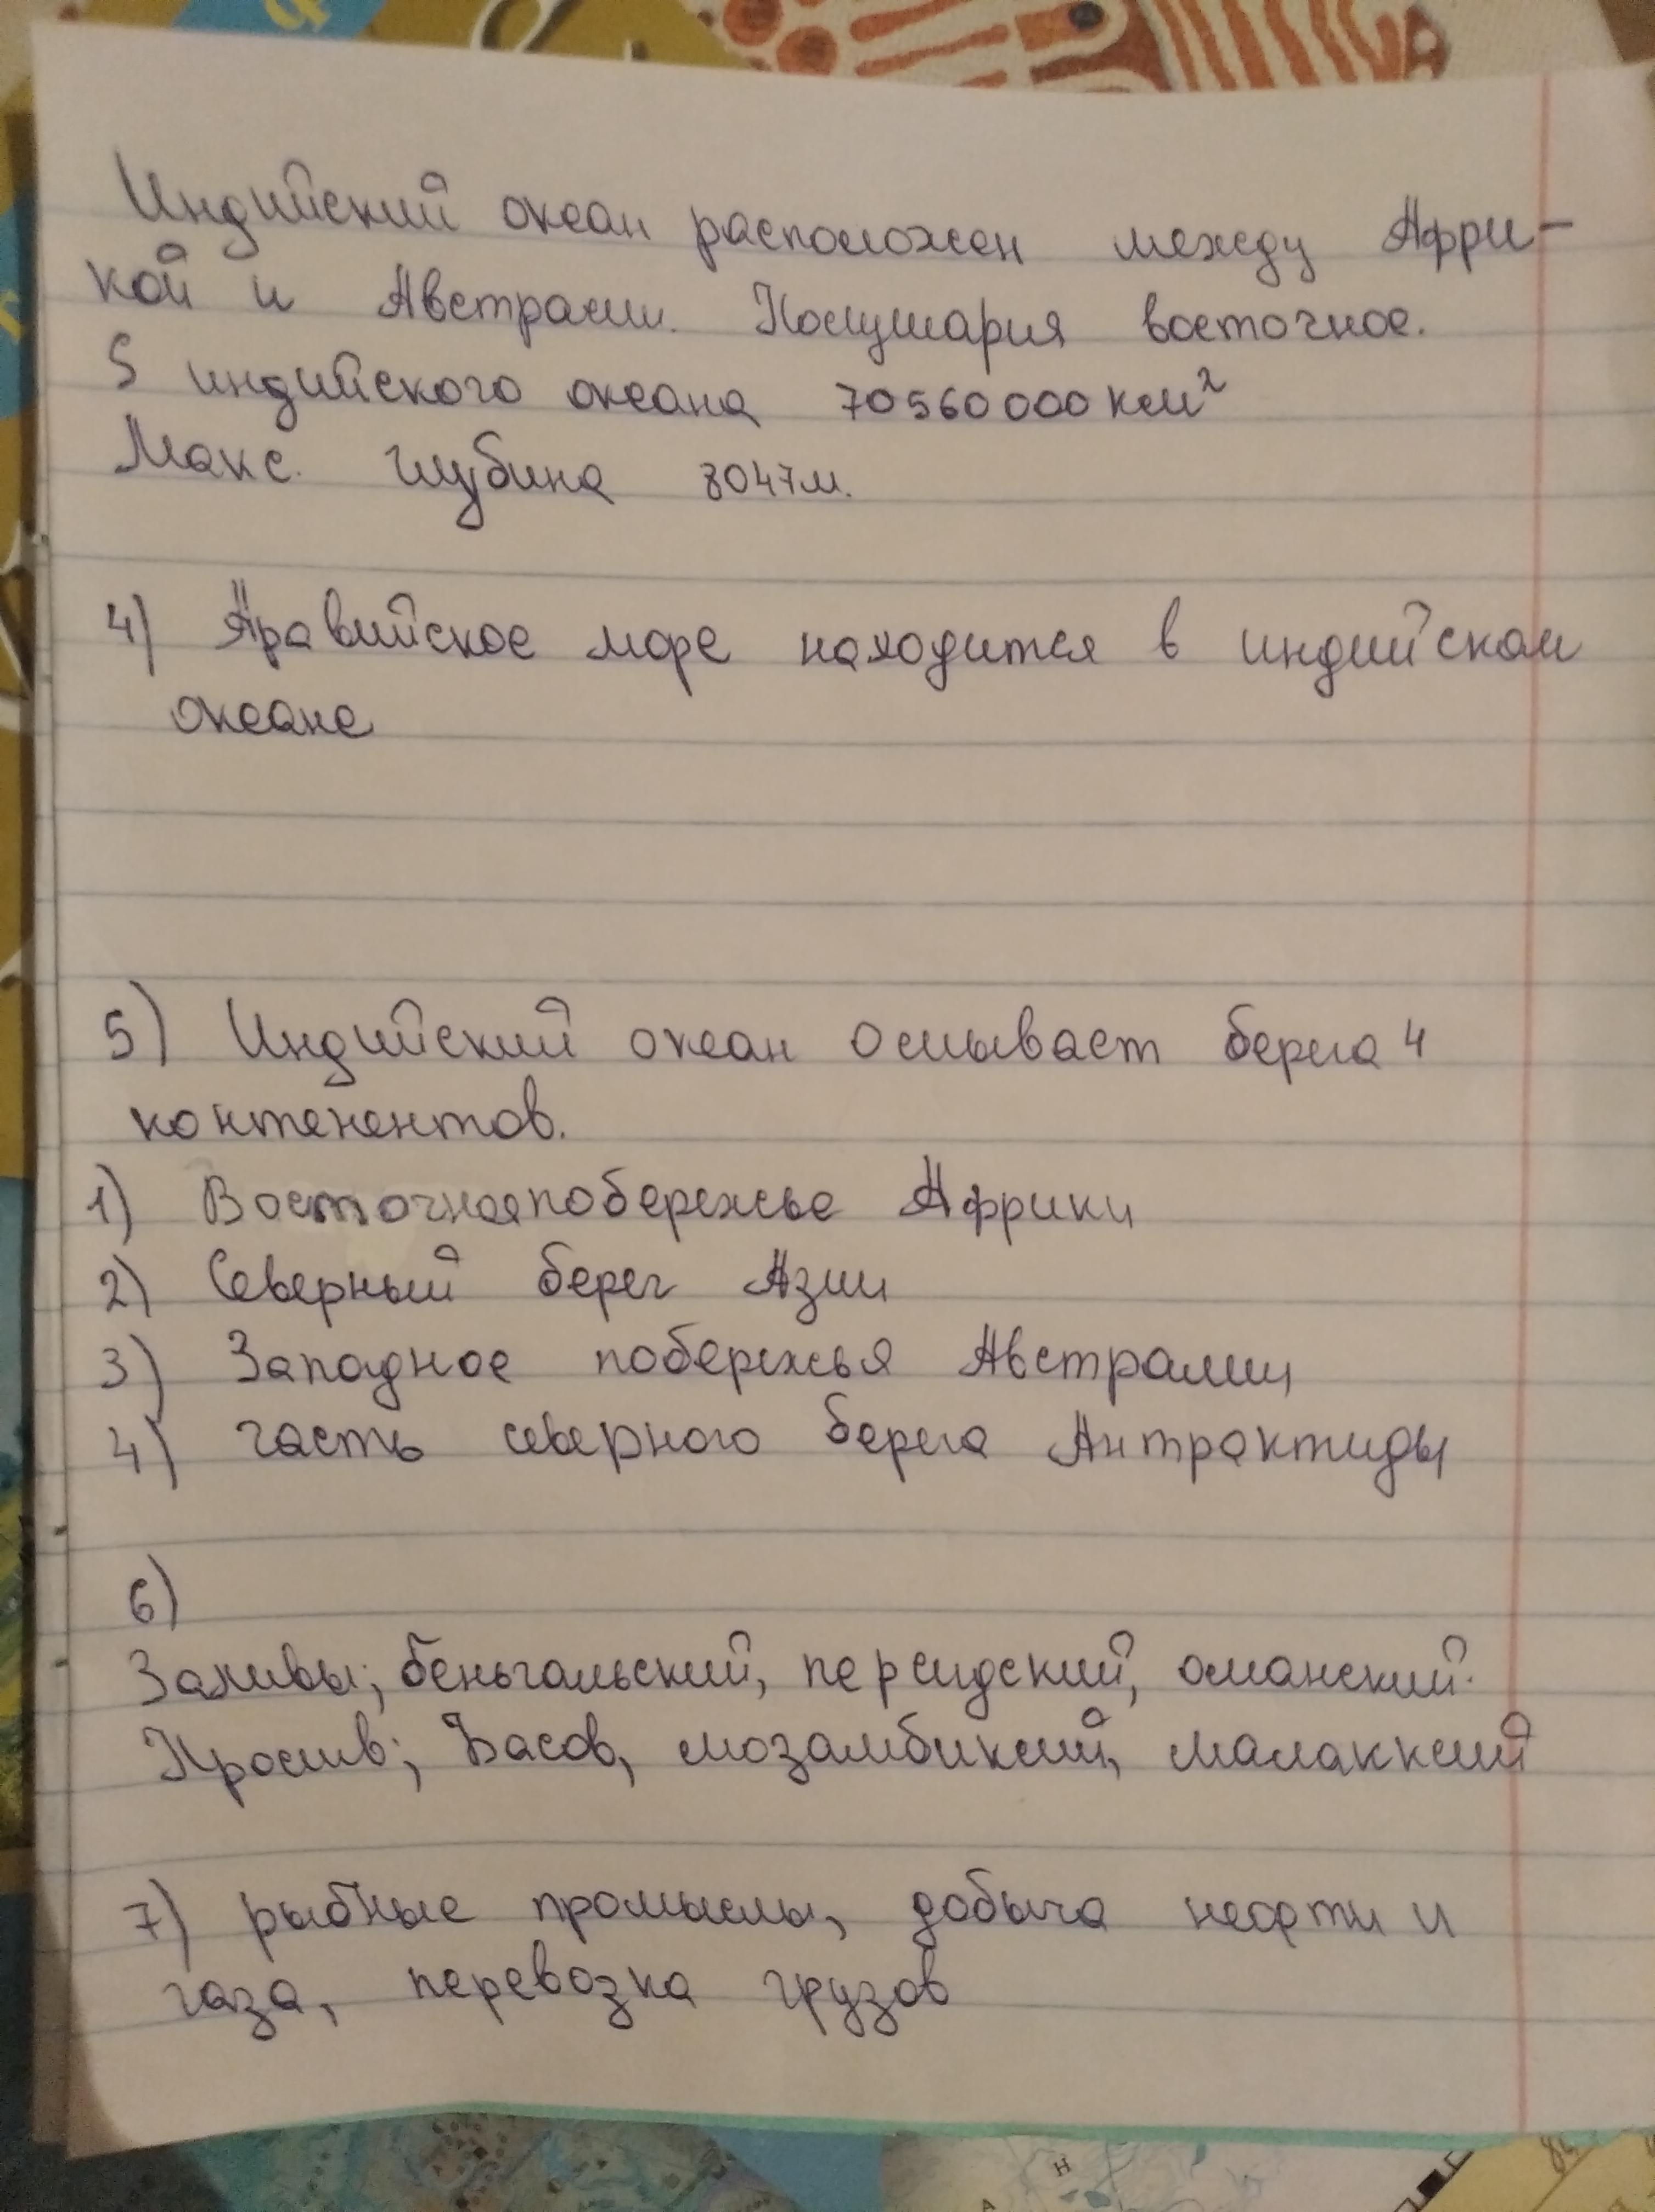 Индийский океан расположен между Афри-
кой и Австрали. Полушария восточное.
S индийского океана 70560000 км²
Макс. глубина 8047м.
4) Аравийское море находится в индийском
океане
5) Индийский океан омывает берега 4
контенентов.
1) Восточная побережье Африки
2) Северный берег Азии
3) Западное побережья Австралии
4) часть северного берега Антрактиды
6)
Заливы; беньгальский, персидский, оманский.
Пролив; Басов, мозамбикский, малаккский
7) рыбные промыслы, добыча нефти и
газа, перевозка грузов